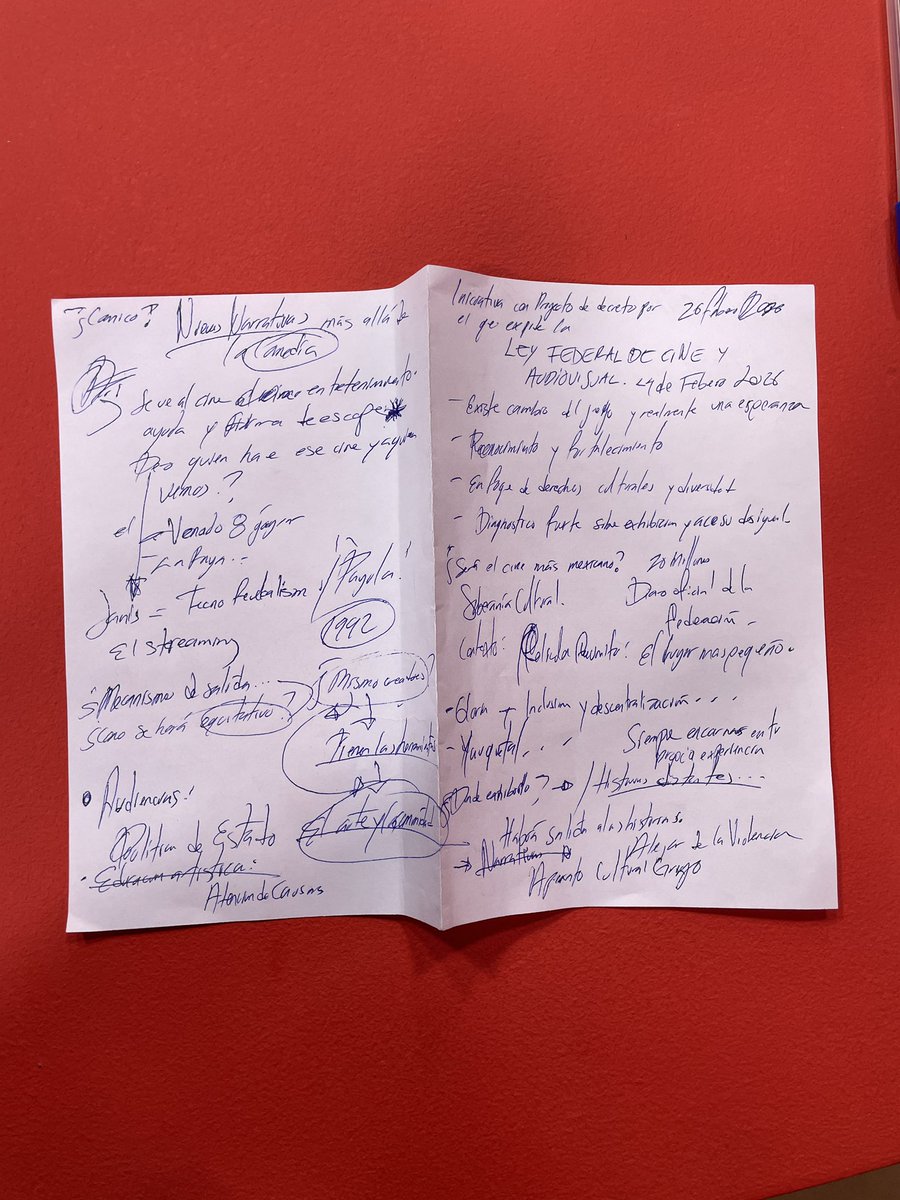 ¿¡Camico?!
Nuevas Narrativas más allá de
la Comedia
Se ve al cine en entretenimiento.
ayuda y forma de escape
Pero quien hace ese cine y a quien
vemos?
el
Venado
Janis = Tecno feudalism
El streaming
¡Payola!
1992
¿Mecanismo de salida...
¿Como se hará equitativo?
¿Mismo creadores?
Tienen las herramientas
El arte y comunidad
Audiencias!
política de Estado
Educacion artistica:
Atencion de Causas
Iniciativa con Proyecto de decreto por 26
el que expide la
LEY FEDERAL DE CINE Y
AUDIOVISUAL. 24 de Febrero 2026
- Existe cambio del juego y realmente una esperanza
- Reconocimiento y fortalecimiento
- Enfoque de derechos culturales y diversidad
- Diagnostico fuerte sobre exhibicion y acceso desigual
¿Será el cine más mexicano? 20 Millones
Soberanía Cultural. Diario oficial de la
federación.
Contexto: Pelicula favorita: El lugar mas pequeño.
- Gloria + Inclusion y descentralización...
Siempre encarnas en tu
propia experiencia
¿Donde exhibirlo? → Historias distintas...
Habrá salida a las historias
→ Narrativas
Alejar de la Violencia
Cultural